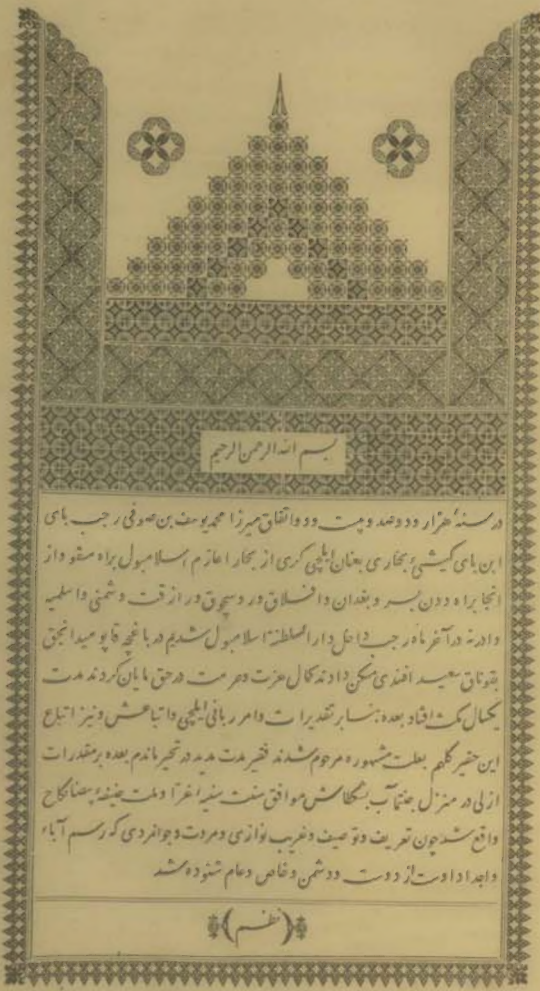 بسم الله الرحمن الرحيم
در سنهٔ هزار و دوصد و بیست و دو واتفاق میرزا محمد یوسف بن صوفی رجب بای
ابن بای کیشیٔ بخاری بعنان ایلچی کری از بخارا عازم اسلامبول براه مسقو و از
انجا براه دون بسر و بغدان و افلاق و روسچوق و رازقت و شمنی و اسلمیه
و ادرنه در آخر ماه رجب داخل دار السلطنهٔ اسلامبول شدیم در باغچه قاپو میدانجق
بقوناق سعید افندی مسکن دادند کمال عزت و حرمت در حق مایان کردند مدت
یکسال مکث افتاد بعده بنابر تقدیرات و امر ربانی ایلچی و اتباعش و نیز اتباع
این حقیر کلهم بعلت مشهوره مرحوم شدند فقیر مدت مدید در تحیر ماندم بعده بر مقدرات
ازلی در منزل جنتمآب بشکطاش موافق سنت سنیه اغرا و ملت حنیفهٔ بیضا نکاح
واقع شد چون تعریف و توصیف و غریب نوازی و مروت و جوانمردی که رسم آباء
و اجداد اوست از دوست و دشمن و خاص و عام شنوده شد
(نظم)